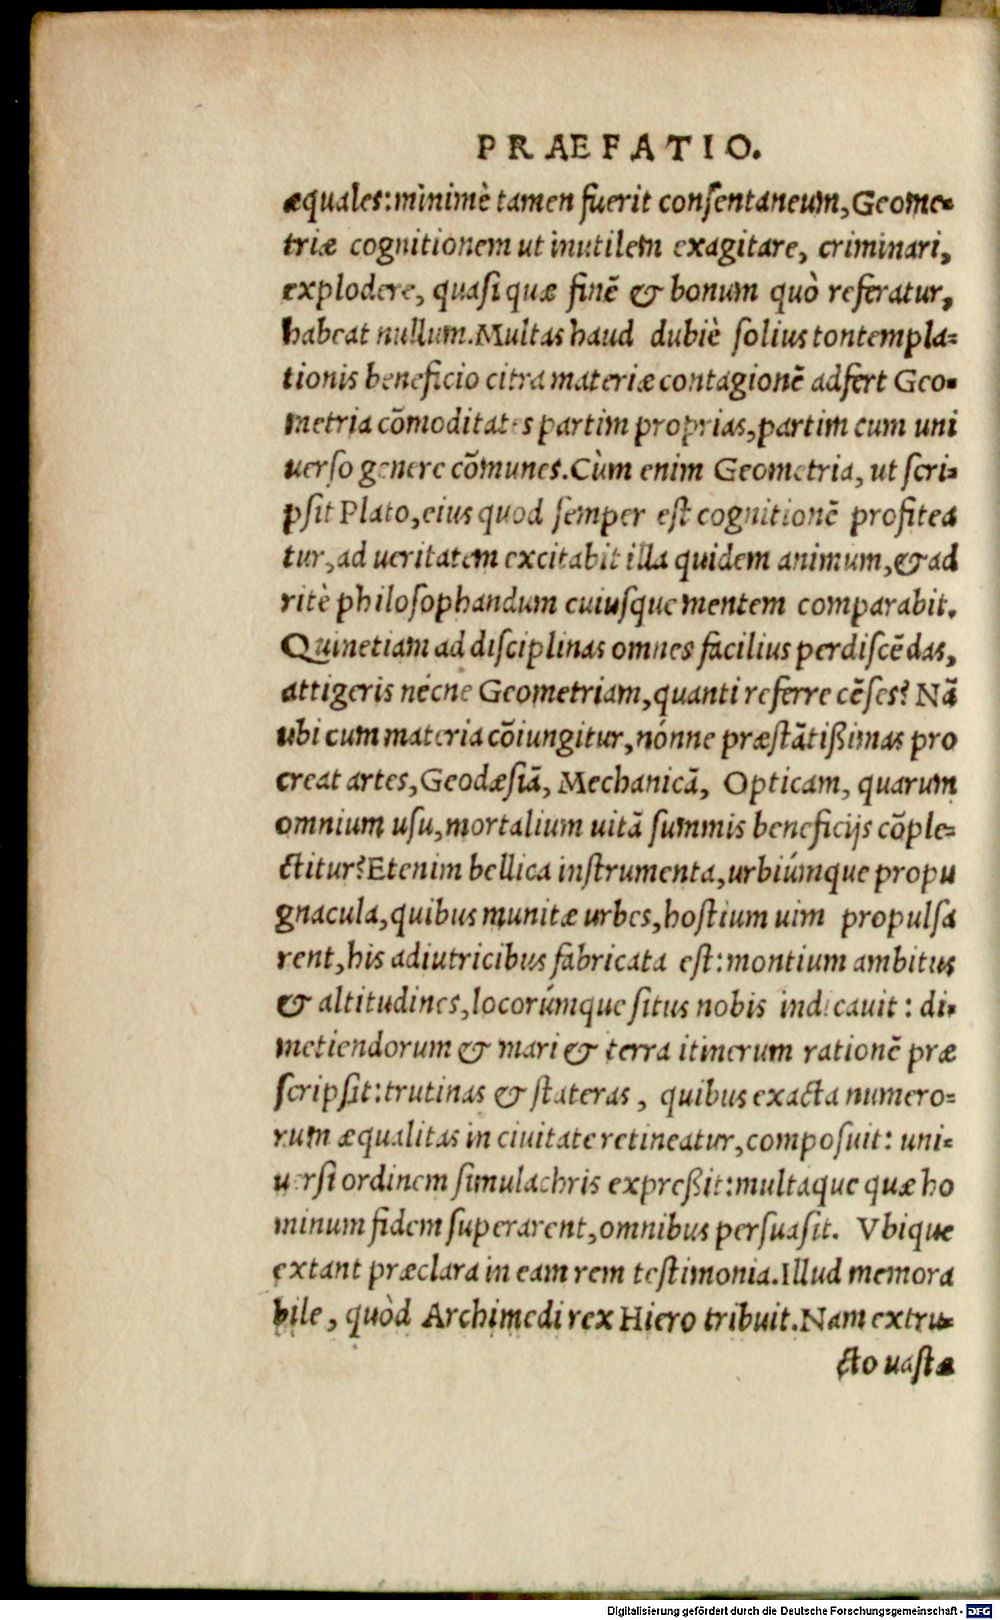 PRAEFATIO.
æquales: minimè tamen fuerit consentaneum, Geome-
triæ cognitionem ut inutilem exagitare, criminari,
explodere, quasi quæ finē & bonum quò referatur,
habeat nullum. Multas haud dubiè solius tontempla-
tionis beneficio citra materiæ contagionē adfert Geo-
metria cōmoditates partim proprias, partim cum uni
uerso genere cōmunes. Cùm enim Geometria, ut scri-
psit Plato, eius quod semper est cognitionē profitea
tur, ad ueritatem excitabit illa quidem animum, & ad
ritè philosophandum cuiusque mentem comparabit.
Quinetiam ad disciplinas omnes facilius perdiscēdas,
attigeris nécne Geometriam, quanti referre cēses? Nā
ubi cum materia cōiungitur, nónne præstātißimas pro
creat artes, Geodæsiā, Mechanicā, Opticam, quarum
omnium usu, mortalium uitā summis beneficijs cōple-
ctitur? Etenim bellica instrumenta, urbiúmque propu
gnacula, quibus munitæ urbes, hostium uim propulsa
rent, his adiutricibus fabricata est: montium ambitus
& altitudines, locorúmque situs nobis indicauit: di-
metiendorum & mari & terra itinerum rationē præ
scripsit: trutinas & stateras, quibus exacta numero-
rum æqualitas in ciuitate retineatur, composuit: uni-
uersi ordinem simulachris expreßit: multaque quæ ho
minum fidem superarent, omnibus persuasit. Vbique
extant præclara in eam rem testimonia. Illud memora
bile, quòd Archimedi rex Hiero tribuit. Nam extru-
cto uastæ
Digitalisierung gefördert durch die Deutsche Forschungsgemeinschaft - DFG